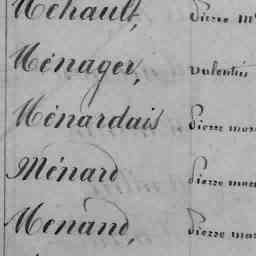 Méhault, Pierre
Ménager, Valentin
Ménardais Pierre
Ménard Pierre
Menand, Pierre